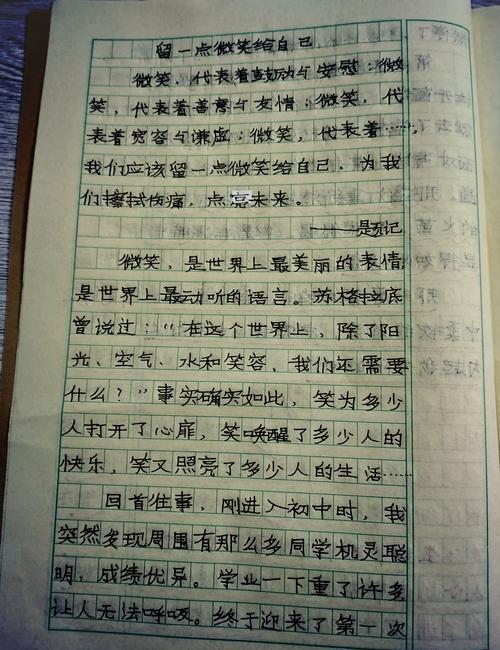 留一点微笑给自己
微笑，代表着鼓动与安慰；微
笑，代表着善意与友情；微笑，代
表着宽容与谦虚；微笑，代表着……
我们应该留一点微笑给自己，为我
们擦拭伤痛，点亮未来。
——题记
微笑，是世界上最美丽的表情，
是世界上最动听的语言。苏格拉底
曾说过：“在这个世界上，除了阳
光、空气、水和笑容，我们还需要
什么？”事实确实如此，笑为多少
人打开了心扉，笑唤醒了多少人的
快乐，笑又照亮了多少人的生活……
回首往事，刚进入初中时，我
突然发现周围有那么多同学机灵聪
明，成绩优异。学业一下重了许多
让人无法呼吸。终于迎来了第一次